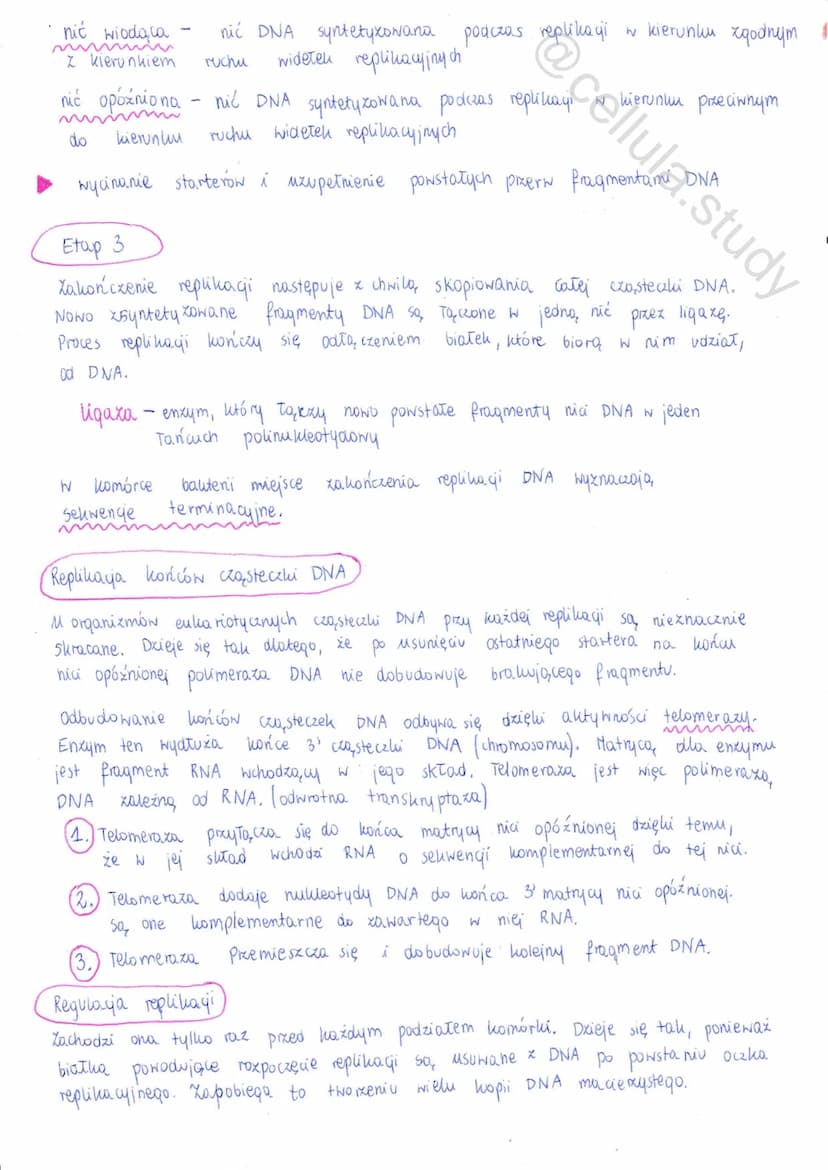 nić wiodąca - nić DNA syntetyzowana podczas replikacji w kierunku zgodnym
z kierunkiem ruchu widełek replikacyjnych
nić opóźniona - nić DNA syntetyzowana podczas replikacji w kierunku przeciwnym
do kierunku ruchu widełek replikacyjnych
wycinanie starterów i uzupełnienie powstałych przerw fragmentami DNA
@cellula.study
Etap 3
Zakończenie replikacji następuje z chwilą skopiowania całej cząsteczki DNA.
Nowo zsyntetyzowane fragmenty DNA są łączone w jedną nić przez ligazę.
Proces replikacji kończy się odłączeniem białek, które biorą w nim udział,
od DNA.
ligaza - enzym, który łączy nowo powstałe fragmenty nici DNA w jeden
łańcuch polinukleotydowy
W komórce bakterii miejsce zakończenia replikacji DNA wyznaczają
sekwencje terminacyjne.
Replikacja końców cząsteczki DNA
U organizmów eukariotycznych cząsteczki DNA przy każdej replikacji są nieznacznie
skracane. Dzieje się tak dlatego, że po usunięciu ostatniego startera na końcu
nici opóźnionej polimeraza DNA nie dobudowuje brakującego fragmentu.
Odbudowanie końców cząsteczek DNA odbywa się dzięki aktywności telomerazy.
Enzym ten wydłuża końce 3' cząsteczki DNA (chromosomu). Matrycą dla enzymu
jest fragment RNA wchodzący w jego skład. Telomeraza jest więc polimerazą
DNA zależną od RNA. (odwrotna transkryptaza)
1. Telomeraza przyłącza się do końca matrycy nici opóźnionej dzięki temu,
że w jej skład wchodzi RNA o sekwencji komplementarnej do tej nici.
2. Telomeraza dodaje nukleotydy DNA do końca 3' matrycy nici opóźnionej.
Są one komplementarne do zawartego w niej RNA.
3. Telomeraza przemieszcza się i dobudowuje kolejny fragment DNA.
Regulacja replikacji
Zachodzi ona tylko raz przed każdym podziałem komórki. Dzieje się tak, ponieważ
białka powodujące rozpoczęcie replikacji są usuwane z DNA po powstaniu oczka
replikacyjnego. Zapobiega to tworzeniu wielu kopii DNA macierzystego.